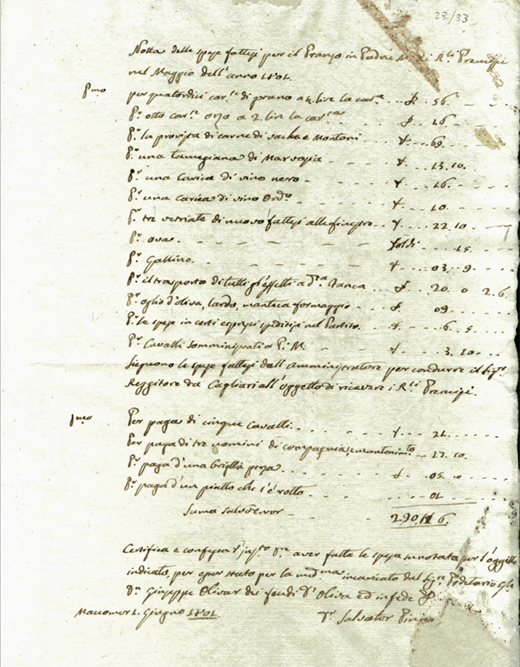 23/33
Notta delle spese fattesi per il Pranzo in Padru M. di R.li Prencipi
nel Maggio dell'anno 1801.
p.mo per quatordici car.li di grano a 4. lire la car.a £ 56
P. otto car.li orzo a 2. lire la car.a £ 16
P. la provista di carne di vacha e Montoni £ 69
P. una damigiana di Marsaglia £ 13.10
P. una carica di vino nero £ 16.
P. una carica di vino Ord.o £ 10
P. tre vetriate di nuovo fattesi alle finestre £ 22.10
P. ova. soldi 15
P. Galline £ 03. 9
P. il trasporto di tutti gl'effetti a d.ta Tanca £ 20. 0 2.6
P. oglio d'oliva, lardo, manteca formaggio £ 09
P. le spese in certi espressi spediti nel Partito £ 6. 5
P. Cavalli somministrati a P. M. £ 3.10
Sieguono le spese fattesi dall'amministratore per condurre il Sig.r
Reggitore da Cagliari all'oggetto di ricevere i R.li Prencipi.
p.mo Per paga di cinque Cavalli £ 21
Per paga di tre uomini di compagnia, e mantenim.to 17.10
P. paga d'una briglia persa £ 05. 0
P. paga d'un piatto che s'è rotto 01
Suma salvo error 290.11 6.
Certifica e confessa l'inf.to D.r aver fatte le spese sunotata per l'oggetto
indicato, per esser stato per la med.ma incaricato dal Sig.r Podatario Gle
D. Giuseppe Olivar dei feudi d'Oliva ed in fede
Macomer 1. Giugno 1801. D.r Salvator Pinna